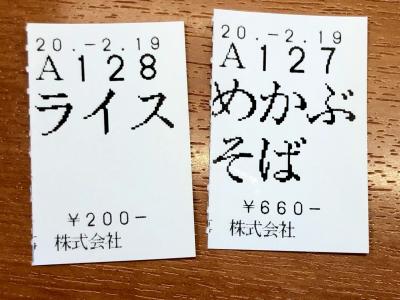 20.-2.19
A128
ライス
¥200-
株式会社
20.-2.19
A127
めかぶ
そば
¥660-
株式会社